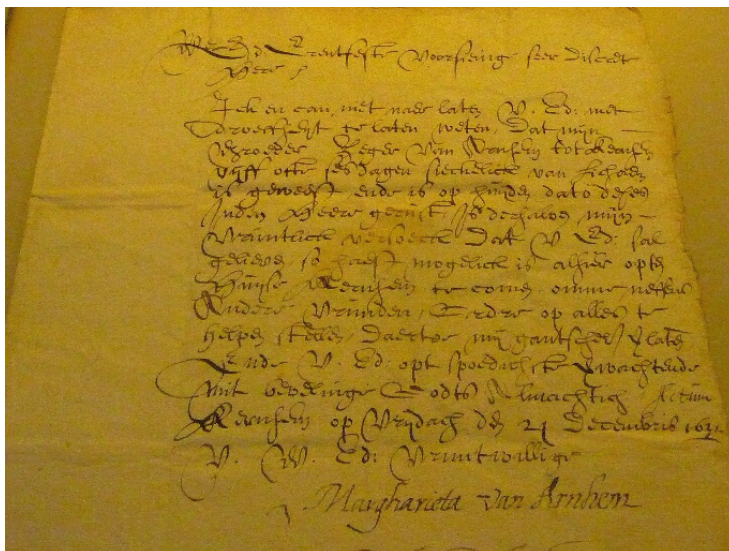 W. Ed. Erentfeste Voorsienige seer discrete
Heere
Ick en can niet naer laten V. Ed: met
droefheyt te laten weten, Dat mijn
broeder Seger Van Arnhem tot
vijff ofte ses dagen sieckelick van lichaem
is geweest ende is op huijden dato deses
Inden Heere gerust, Is derhalven mijn
Vruntlick versoeck Dat V Ed: sal
gelieven so haest mogelick is alhier opten
Huijse te comen omme neffens
Andere Vrunden, Eerdere op alles te
helpen stellen, daertoe mij gantschel. Verlaten
Ende V. Ed: opt spoedichste Verwachtende
Mit bevelinge Godts Almachtich Actum
op Vrijdach den 21 Decembris
V. W. Ed: Vruntwillige
Margharieta van Arnhem